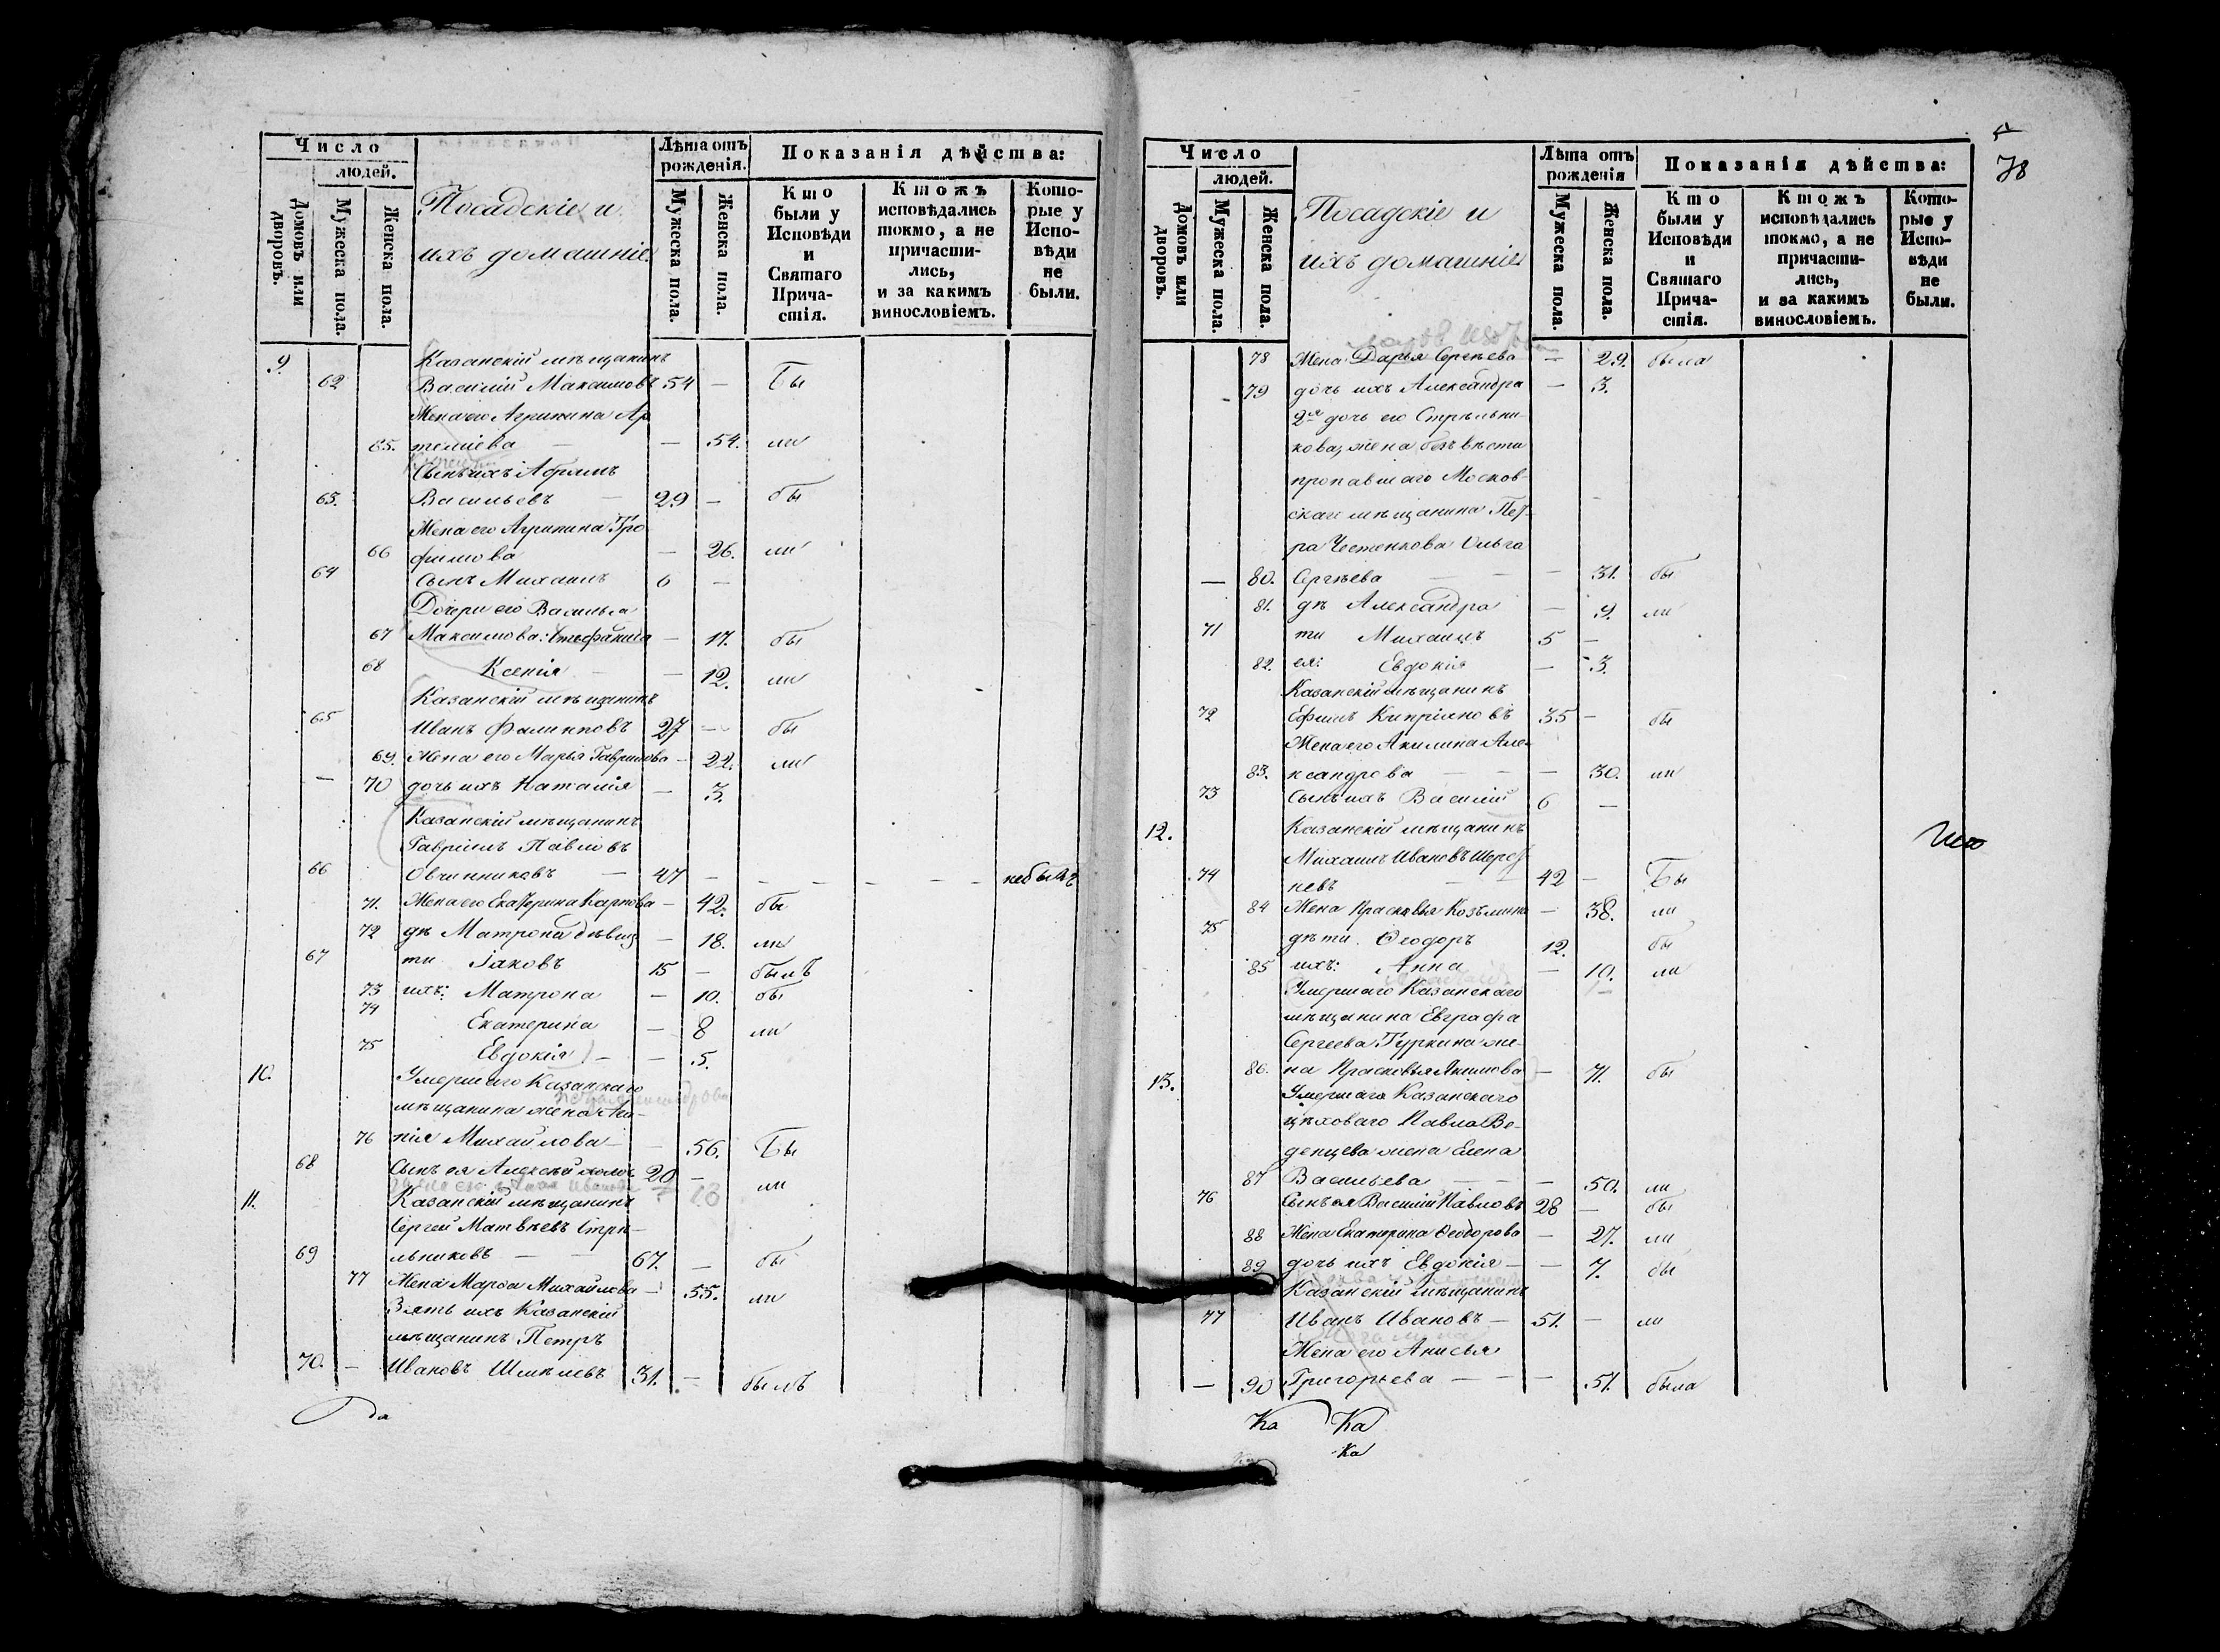 Число
людей.
Домовъ или дворовъ.
Мужеска пола.
Женска пола.
Посадскіе и
ихъ домашніе
Лѣта отъ
рожденія.
Мужеска пола.
Женска пола.
Показанія дѣйства:
Кто
были у
Исповѣди
и
Святаго
Прича-
стія.
Ктожъ
исповѣдались
токмо, а не
причасти-
лись,
и за какимъ
винословіемъ.
Кото-
рые у
Испо-
вѣди
не
были.
9 Казанскій мѣщанинъ
62 Василій Максимовъ 54 — Бы
Жена его Агрипина Ар
65. темiева — — 54. ли
Сынъ ихъ Абрамъ
63. Васильевъ — 29 — бы
Жена его Агрипина Тро
66 фимова — 26. ли
64 сынъ Михаилъ 6 —
Дочери его Василья
67 Максимова: Стефанида — 17. бы
68 Ксенія — — 12. ли
Казанскій мѣщанинъ
65 Иванъ Филипповъ 27 — бы
69. Жена его Марья Гаврилова — 22. ли
— 70 дочь ихъ Наталія — 3.
Казанскій мѣщанинъ
Гавріилъ Павловъ
66 Овчинниковъ — 47 — — — — — — небылъ
71. Жена его Екатерина Карпова — 42. бы
72 дѣ Матрона дѣвиц — 18. ли
67 ти Іаковъ 15 — былъ
73 ихъ: Матрона — 10. бы
74 Екатерина — 8 ли
75 Евдокія — — 5.
10. Умершаго Казанскаго
мѣщанина жена
76 нія Михайлова — — 56. Бы
68 Сынъ ея Алексѣй холос 20 — ли
11. Казанскій мѣщанинъ
Сергей Матвѣевъ Стрѣ-
69 льниковъ — — 67. — бы
77 Жена Марѳа Михайлова — 55. ли
Зять ихъ Казанскій
мѣщанинъ Петръ
70. — Ивановъ Шмѣлевъ 31. — былъ
да
78
Число
людей.
Домовъ или дворовъ.
Мужеска пола.
Женска пола.
Посадскіе и
ихъ домашніе
Лѣта отъ
рожденія
Мужеска пола.
Женска пола.
Показанія дѣйства:
Кто
были у
Исповѣди
и
Святаго
Прича-
стія.
Ктожъ
исповѣдались
токмо, а не
причасти-
лись,
и за какимъ
винословіемъ.
Кото-
рые у
Испо-
вѣди
не
были.
78 Жена Дарья Сергѣева — 29. была
79 дочь ихъ Александра — 3.
2я дочь его Стрѣльни-
кова, жена безъ вѣсти
пропавшаго Москов-
скаго мѣщанина Пет-
ра Честенкова Ольга
— 80. Сергѣева — — — 31. бы
81. дѣ Александра — 9. ли
71 ти Михаилъ 5 —
82. ея: Евдокія — 3.
Казанскій мѣщанинъ
72 Ефимъ Кипріяновъ 35 — бы
Жена его Акилина Але-
83. ксандрова — — — 30. ли
73 Сынъ ихъ Василій 6 —
12. Казанскій мѣщанинъ
Михаилъ Ивановъ
74 невъ — — 42 — Бы
84 Жена Прасковья Козьмина — 38. ли
75 дѣти Ѳеодоръ 12. бы
85 ихъ: Анна — 10. ли
Умершаго Казанскаго
мѣщанина Евграфа
Сергеева Гуркина же-
86. на Прасковья Якимова — 71. бы
13. Умершаго Казанскаго
цѣховаго Павла Ве-
денцева жена Елена
87 Васильева — — — 50. ли
76 Сынъ ея Василій Павловъ 28 — бы
88 Жена Екатерина Ѳеодорова — 27. ли
89 дочь ихъ Евдокія — — 7. бы
Казанскій мѣщанинъ
77 Иванъ Ивановъ — 51. — ли
Жена его Анисья
— 90 Григорьева — — — 51. была
Ка Ка
Ка